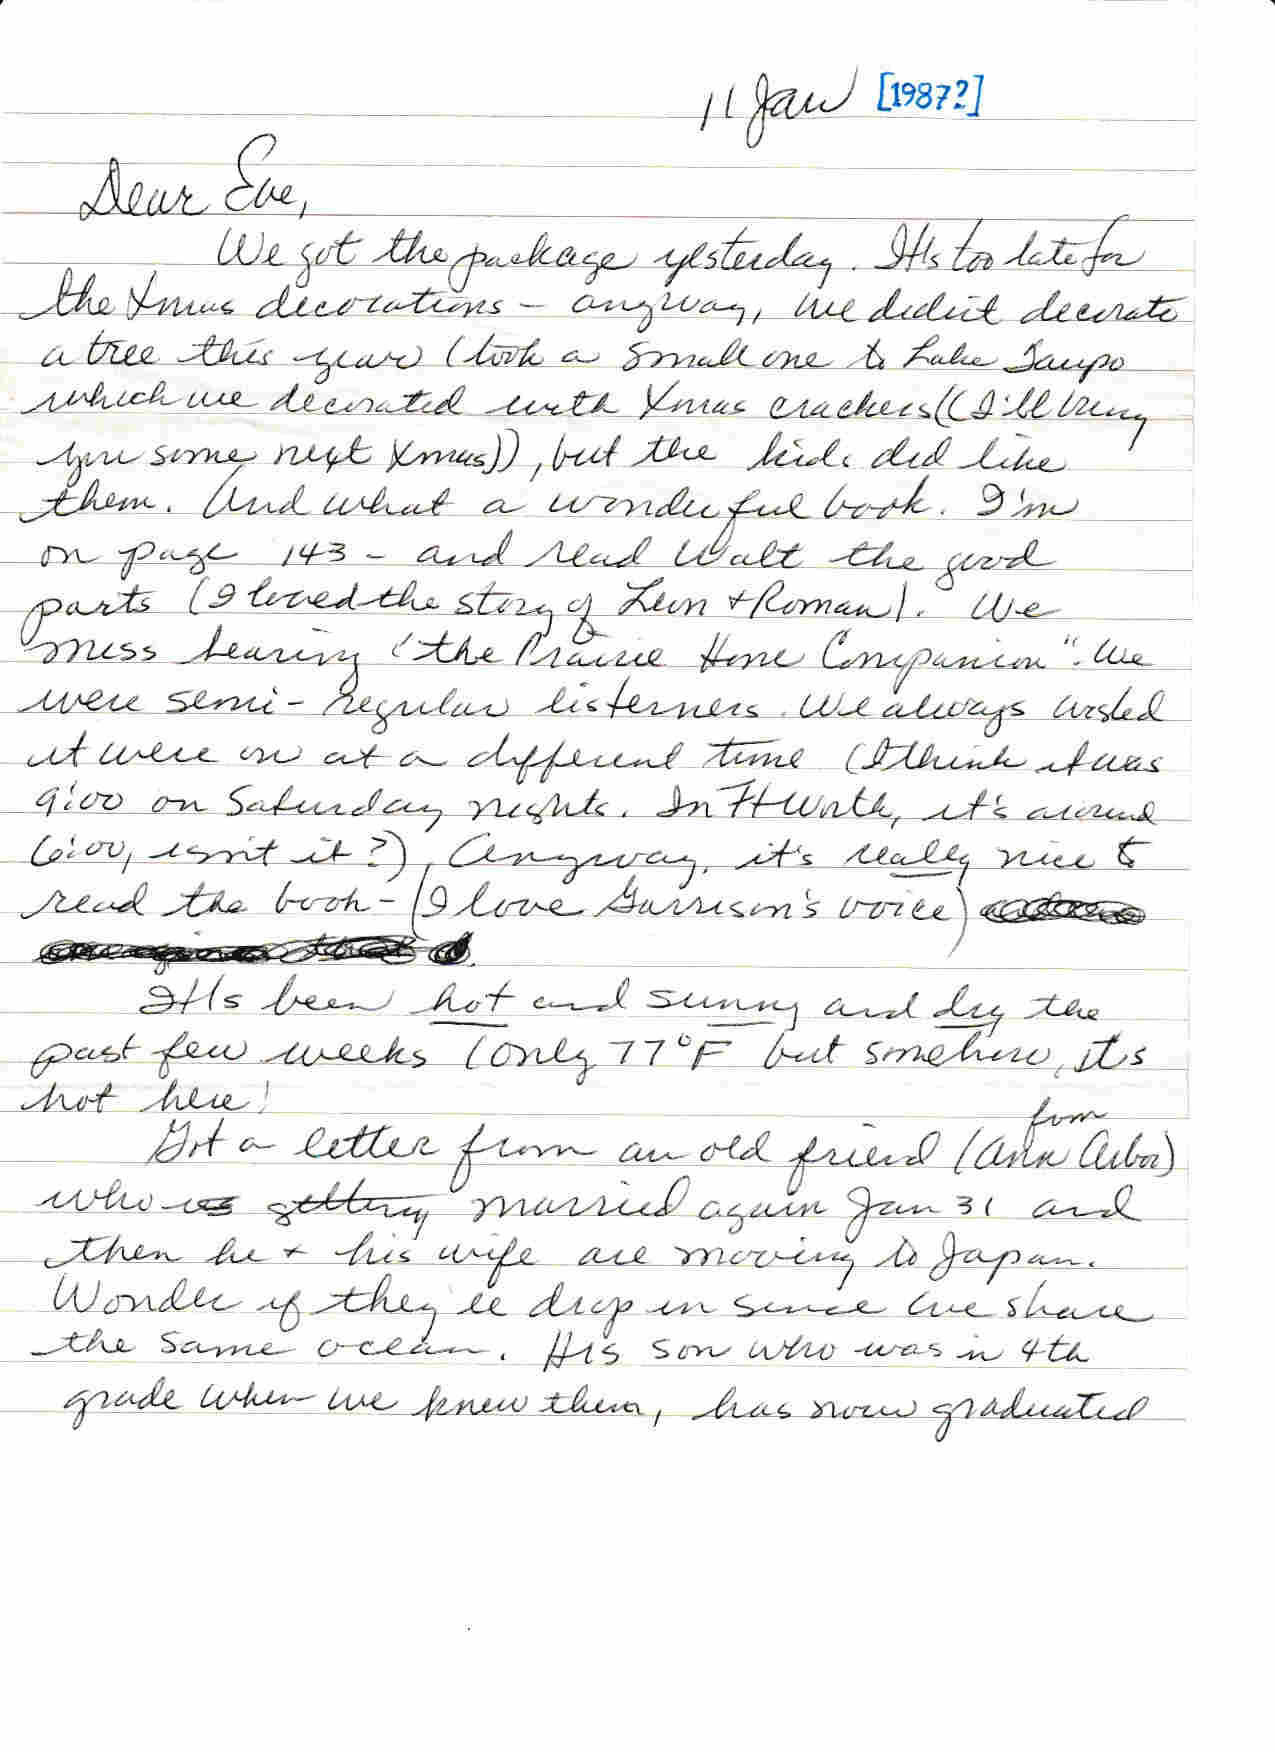 11 Jan [1987?]
Dear Eve,
We got the package yesterday. It's too late for
the Xmas decorations - anyway, we didn't decorate
a tree this year (took a small one to Lake Taupo
which we decorated with Xmas crackers((I'll bring
you some next Xmas)), but the kids did like
them. And what a wonderful book. I'm
on page 143 - and read Walt the good
parts (I loved the story of Leon + Roman). We
miss hearing "the Prairie Home Companion". We
were semi-regular listerners. We always wished
it were on at a different time (I think it was
9:00 on Saturday nights. In Ft Worth, it's around
6:00, isn't it?), Anyway, it's really nice to
read the book - (I love Garrison's voice)
It's been hot and sunny and dry the
past few weeks (only 77°F but somehow, it's
hot here!
Got a letter from an old friend (from Ann Arbor)
who is getting married again Jan 31 and
then he + his wife are moving to Japan.
Wonder if they'll drop in since we share
the same ocean. His son who was in 4th
grade when we knew them, has now graduated